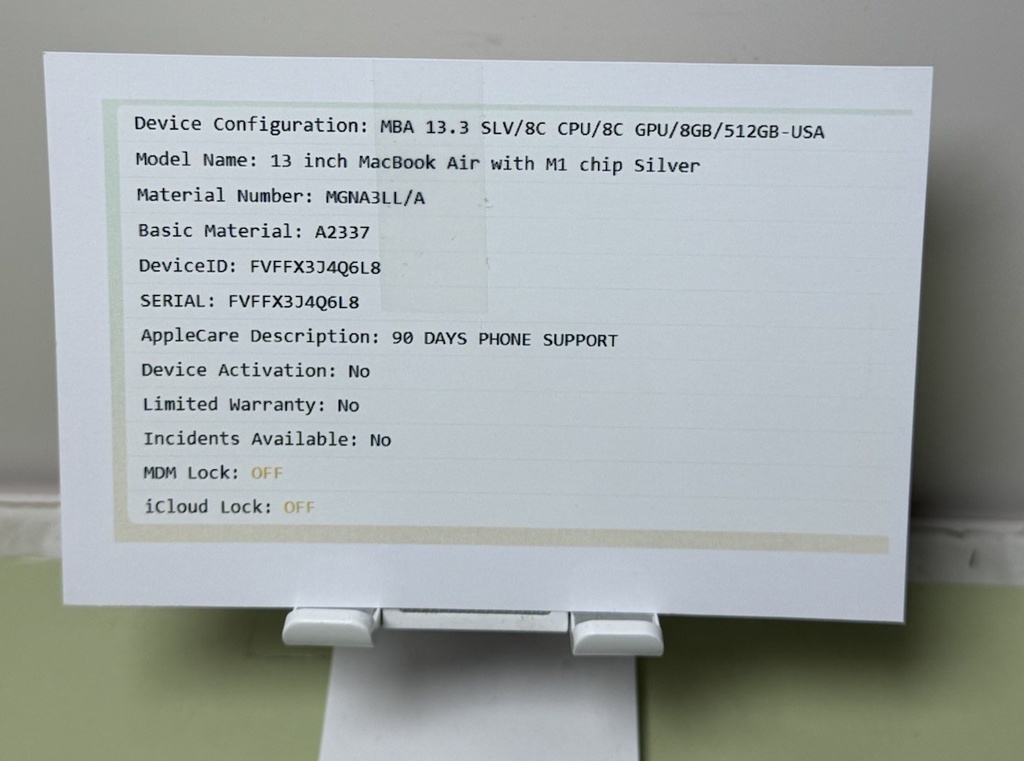 Device Configuration: MBA 13.3 SLV/8C CPU/8C GPU/8GB/512GB-USA
Model Name: 13 inch MacBook Air with M1 chip Silver
Material Number: MGNA3LL/A
Basic Material: A2337
DeviceID: FVFFX3J4Q6L8
SERIAL: FVFFX3J4Q6L8
AppleCare Description: 90 DAYS PHONE SUPPORT
Device Activation: No
Limited Warranty: No
Incidents Available: No
MDM Lock: OFF
iCloud Lock: OFF